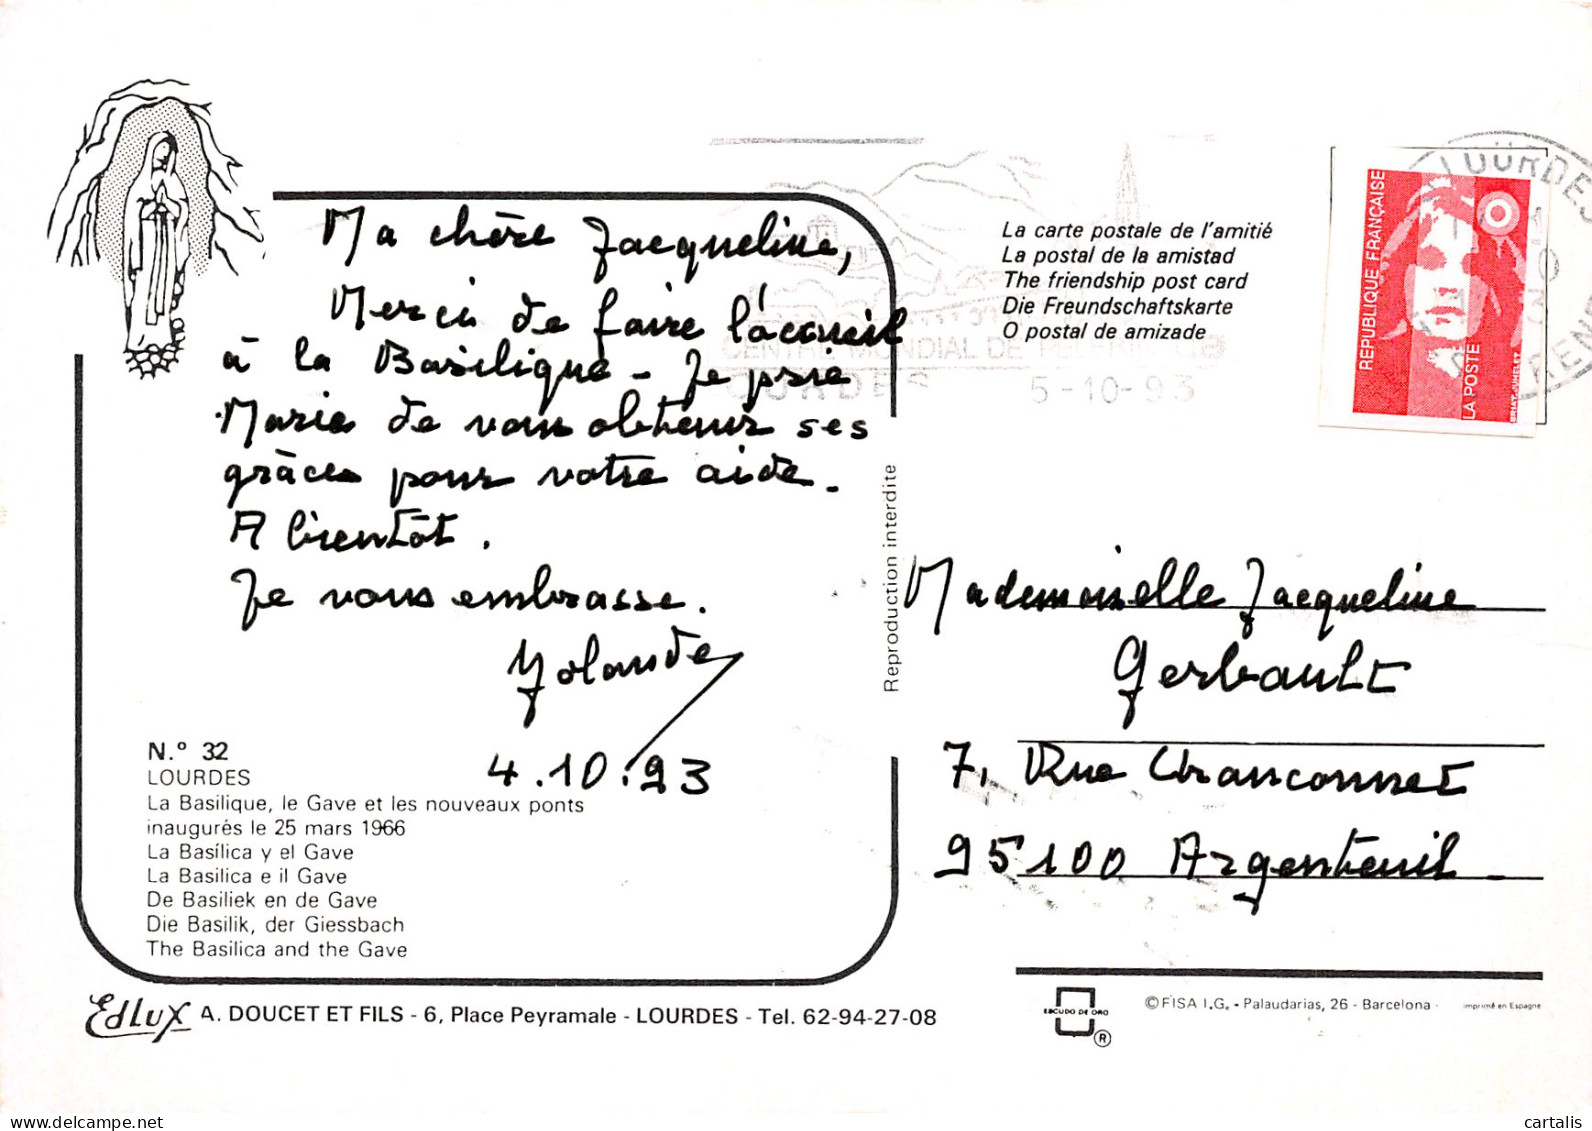 Ma chère Jacqueline,
Merci de faire l'acceuil
à la Basilique - Je prie
Marie de vous obtenir ses
grâces pour votre aide.
A bientôt.
Je vous embrasse.
Yolande
4.10.93
N.º 32
LOURDES
La Basilique, le Gave et les nouveaux ponts
inaugurés le 25 mars 1966
La Basílica y el Gave
La Basilica e il Gave
De Basiliek en de Gave
Die Basilik, der Giessbach
The Basilica and the Gave
EdLux A. DOUCET ET FILS - 6, Place Peyramale - LOURDES - Tel. 62-94-27-08
Reproduction interdite
CENTRE MONDIAL DE PELERINAGE
LOURDES 5-10-93
La carte postale de l'amitié
La postal de la amistad
The friendship post card
Die Freundschaftskarte
O postal de amizade
REPUBLIQUE FRANÇAISE
LA POSTE
BRIAT-JUMELET
LOURDES
Mademoiselle Jacqueline
Gerbault
7, Rue Chanconnet
95100 Argenteuil -
ESCUDO DE ORO
®
© FISA I.G. - Palaudarias, 26 - Barcelona
imprimé en Espagne
cartalis